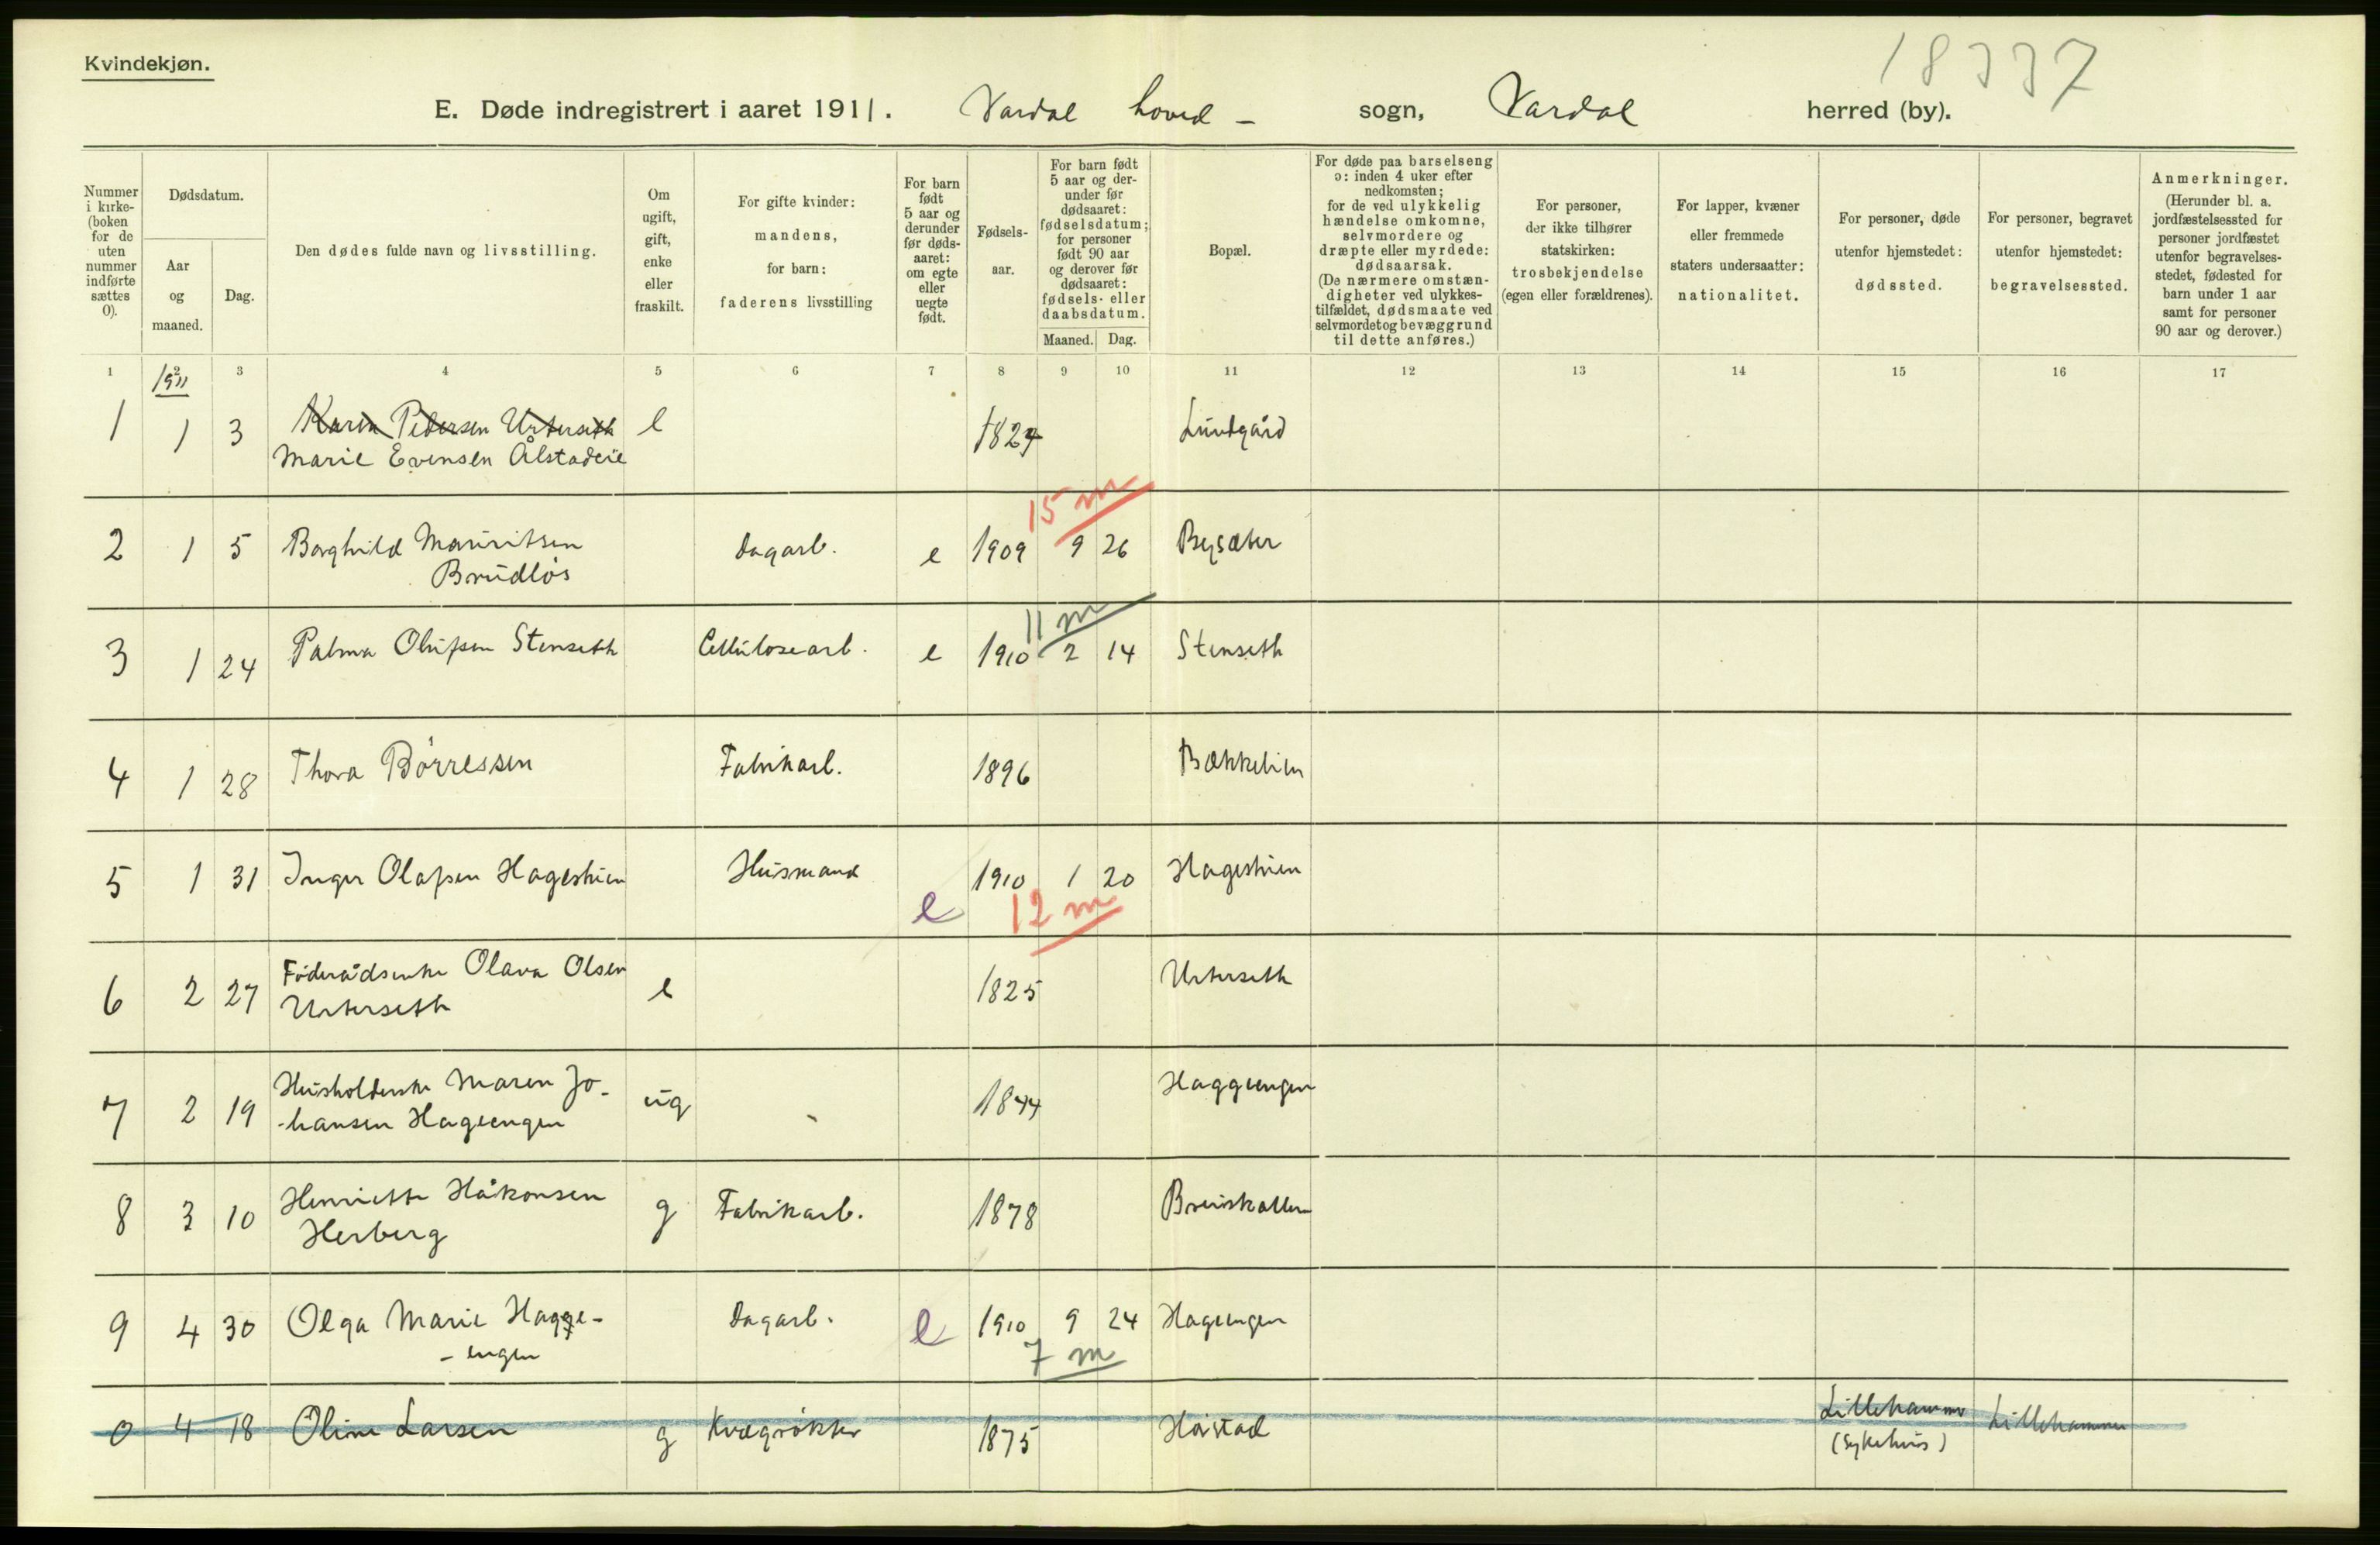 18337
Kvindekjøn.
E. Døde indregistrert i aaret 1911. Vardal hoved - sogn, Vardal herred (by).
Nummer i kirke- (boken for de uten nummer indførte sættes 0).
Dødsdatum.
Aar og maaned.
Dag.
Den dødes fulde navn og livsstilling.
Om ugift, gift, enke eller fraskilt.
For gifte kvinder: mandens, for barn: faderens livsstilling
For barn født 5 aar og derunder før døds-aaret: om egte eller uegte født.
Fødsels-aar.
For barn født 5 aar og der-under før dødsaaret: fødselsdatum; for personer født 90 aar og derover før dødsaaret: fødsels- eller daabsdatum.
Maaned. Dag.
Bopæl.
For døde paa barselseng ɔ: inden 4 uker efter nedkomsten; for de ved ulykkelig hændelse omkomne, selvmordere og dræpte eller myrdede: dødsaarsak. (De nærmere omstæn-digheter ved ulykkes-tilfældet, dødsmaate ved selvmordet og bevæggrund til dette anføres.)
For personer, der ikke tilhører statskirken: trosbekjendelse (egen eller forældrenes).
For lapper, kvæner eller fremmede staters undersaatter: nationalitet.
For personer, døde utenfor hjemstedet: dødssted.
For personer, begravet utenfor hjemstedet: begravelsessted.
Anmerkninger. (Herunder bl. a. jordfæstelsessted for personer jordfæstet utenfor begravelses-stedet, fødested for barn under 1 aar samt for personer 90 aar og derover.)
1 2 3 4 5 6 7 8 9 10 11 12 13 14 15 16 17
1911
1 1 3 Karin Pedersen Urterseth e 1824 Lundgård
Marie Evensen Ålstadeie
15 m
2 1 5 Borghild Mauritsen Dagarb. e 1909 9 26 Bysæter
Brudløs
11 m
3 1 24 Palma Olufsen Stenseth Cellulosearb. e 1910 2 14 Stenseth
4 1 28 Thora Børressen Fabrikarb. 1896 Bækkelien
5 1 31 Inger Olafsen Hagestuen Husmand e 1910 1 20 Hagestuen
12 m
6 2 27 Føderådsenke Olava Olsen e 1825 Urterseth
Urterseth
7 2 19 Husholderske Maren Jo- ug 1844 Haggeengen
-hansen Hageengen
8 3 10 Henriette Håkonsen g Fabrikarb. 1878 Bruiskallen
Herberg
9 4 30 Olga Marie Hagge- Dagarb. e 1910 9 24 Hageengen
- engen
7 m
0 4 18 Oline Larsen g Kvægrøkter 1875 Høistad Lillehammer Lillehammer
(Sykehus)